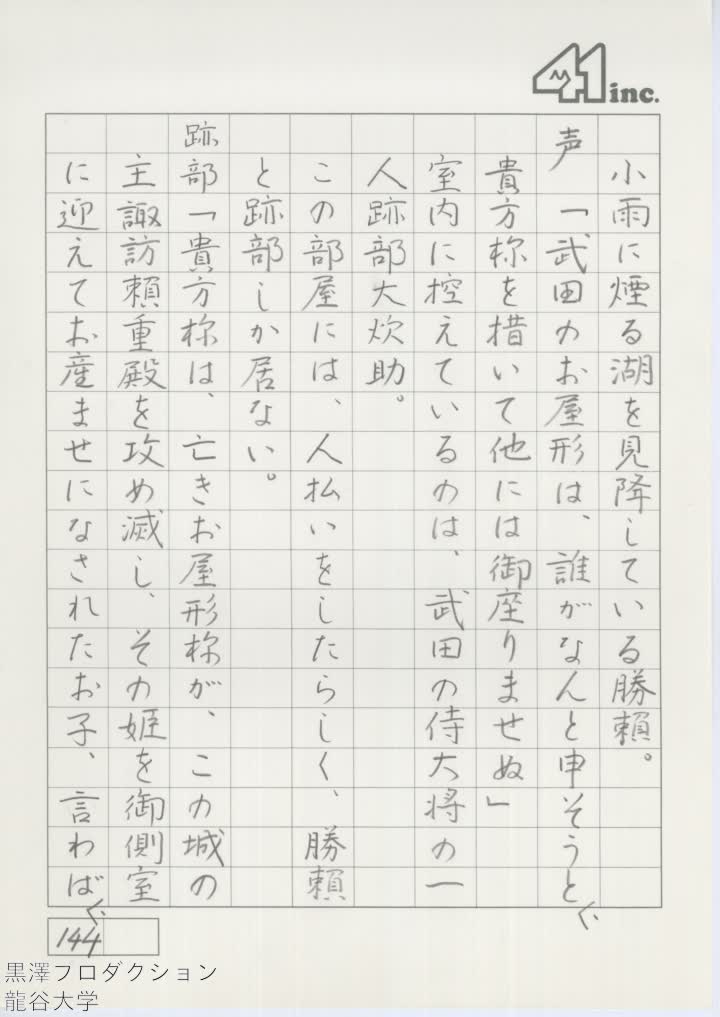 41 inc.
小雨に煙る湖を見降している勝頼。
声「武田のお屋形は、誰がなんと申そうと、
貴方称を措いて他には御座りませぬ」
室内に控えているのは、武田の侍大将の一
人跡部大炊助。
この部屋には、人払いをしたらしく、勝頼
と跡部しか居ない。
跡部「貴方称は、亡きお屋形称が、この城の
主諏訪頼重殿を攻め滅し、その姫を御側室
に迎えてお産ませになされたお子、言わば、
144
黒澤プロダクション
龍谷大学